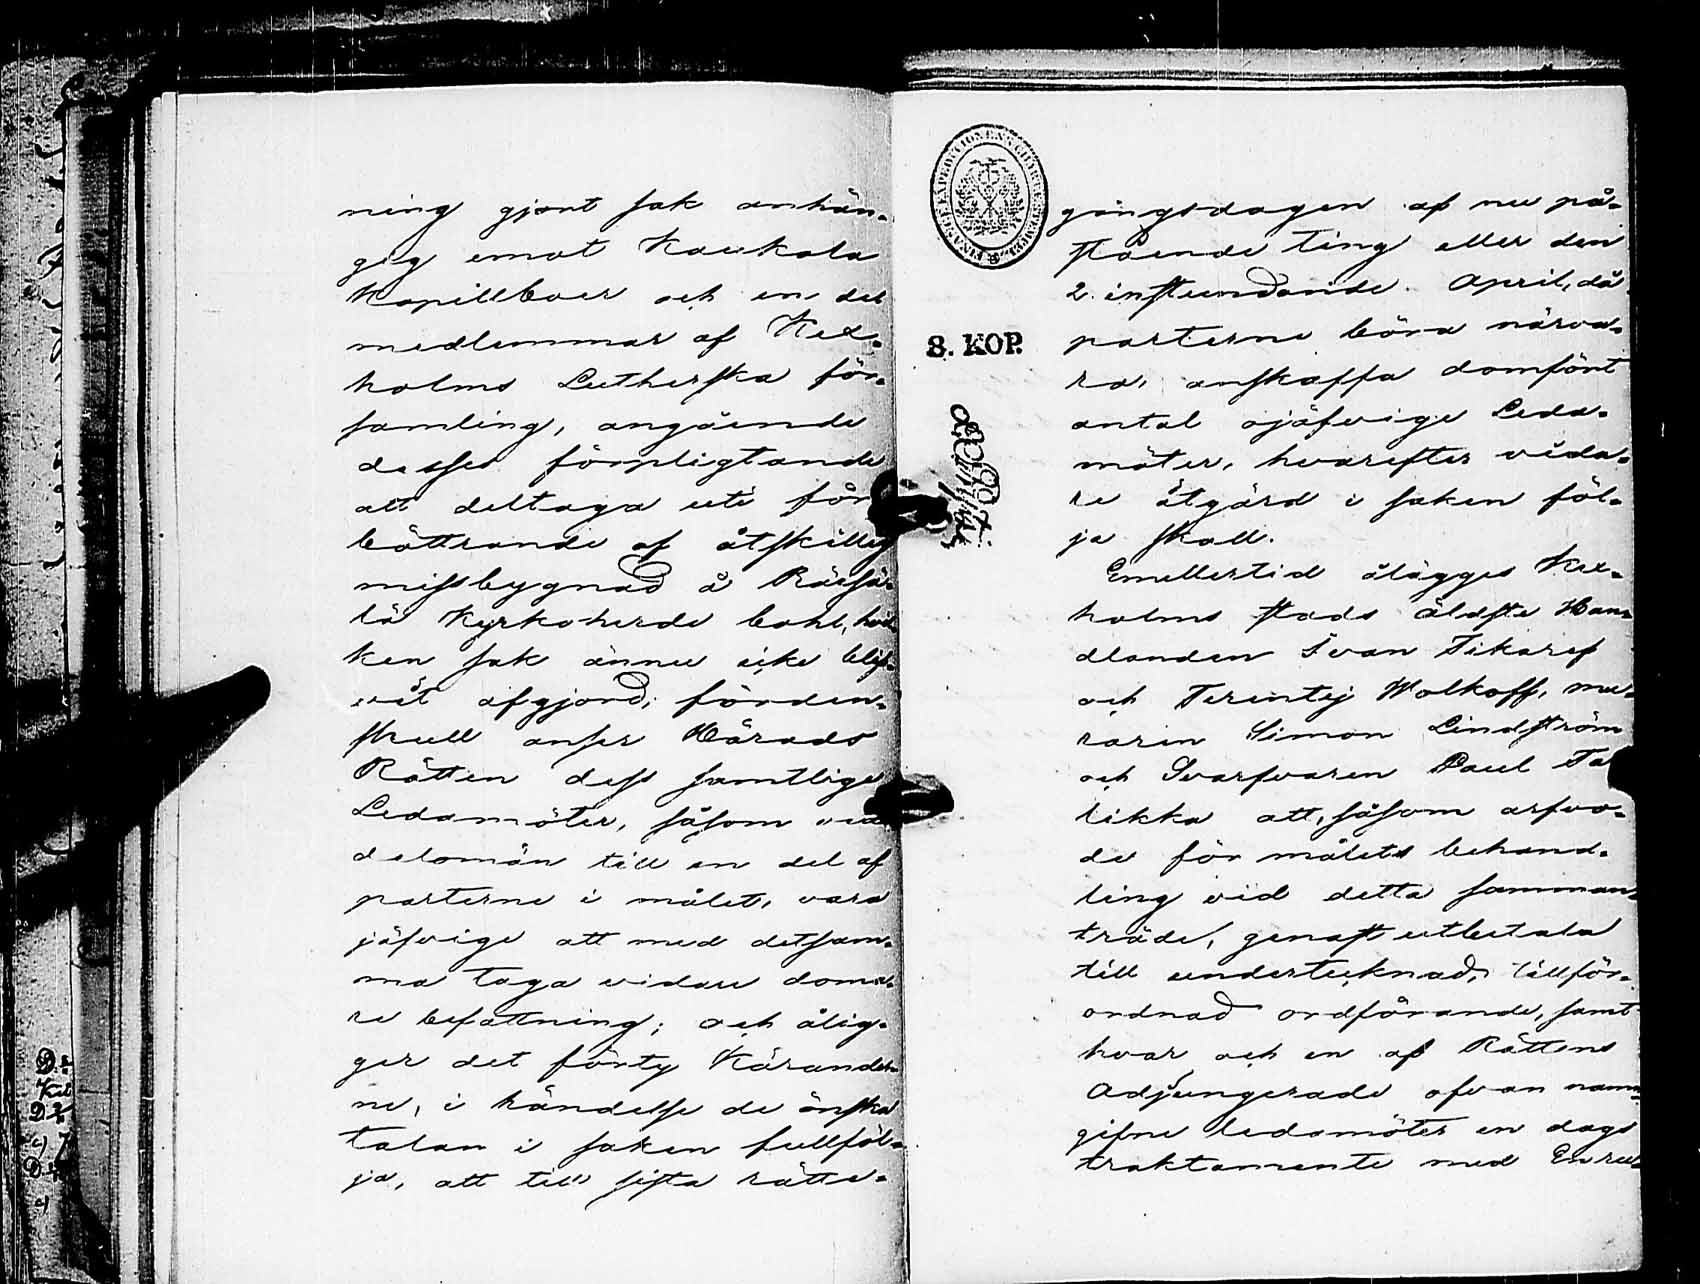 ning gjort sak anhän-
gig emot Kaukola
Kapellboer och en del
medlemmar af Kex-
holms Lutherska för-
samling, angående
desses förpligtande
att deltaga uti för
bättrande af åtskillig
missbygnad å Räisä-
lä Kyrkoherde bohl, hvil-
ken sak ännu icke blif-
vit afgjord; förden-
skull anser Härads
Rätten dess samtlige
Ledamöter, såsom vid
delomän till en del af
parterne i målet, vara
jäfvige att med detsam-
ma taga vidare doma-
re befattning; och ålig-
ger det förty Kärander-
ne, i händelse de önska
talan i saken fullföl-
ja, att till sista rätte-
gångsdagen af nu på-
stående ting eller den
2. instundande April, då
parterne böra närva-
ra, anskaffa domfört
antal ojäfvige Leda-
möter, hvarefter vida-
re åtgärd i saken föl-
ja skall.
Emellertid ålägges Kex-
holms stads äldste Han-
dlanden Ivan Tikaref
och Terentej Wolkoff, mu-
raren Simon Lindström
och Svarfvaren Paul Ta
rikka att, såsom arfvo-
de för målets behand-
ling vid detta samman-
träde, genast utbetala
till undertecknad, tillför-
ordnad ordförande, samt
hvar och en af Rättens
Adjungerade ofvan nam-
gifne ledamöter en dags
traktamente med En ru-
8. KOP.